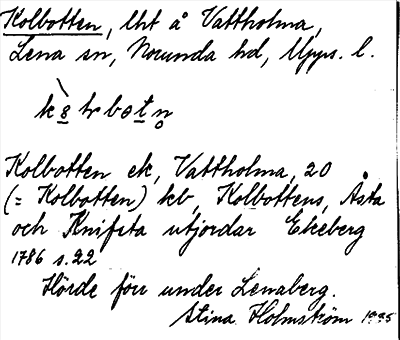 Kolbotten, lht å Vattholma,
Lena sn, Norunda hd, Upps. l.
Kolbotten ek, Vattholma, 20
(= Kolbotten) kb, Kolbottens, Åsta
och Knifsta utjordar Ekeberg
1786 s. 22
Hörde förr under Lenaberg.
Stina Holmström 1995